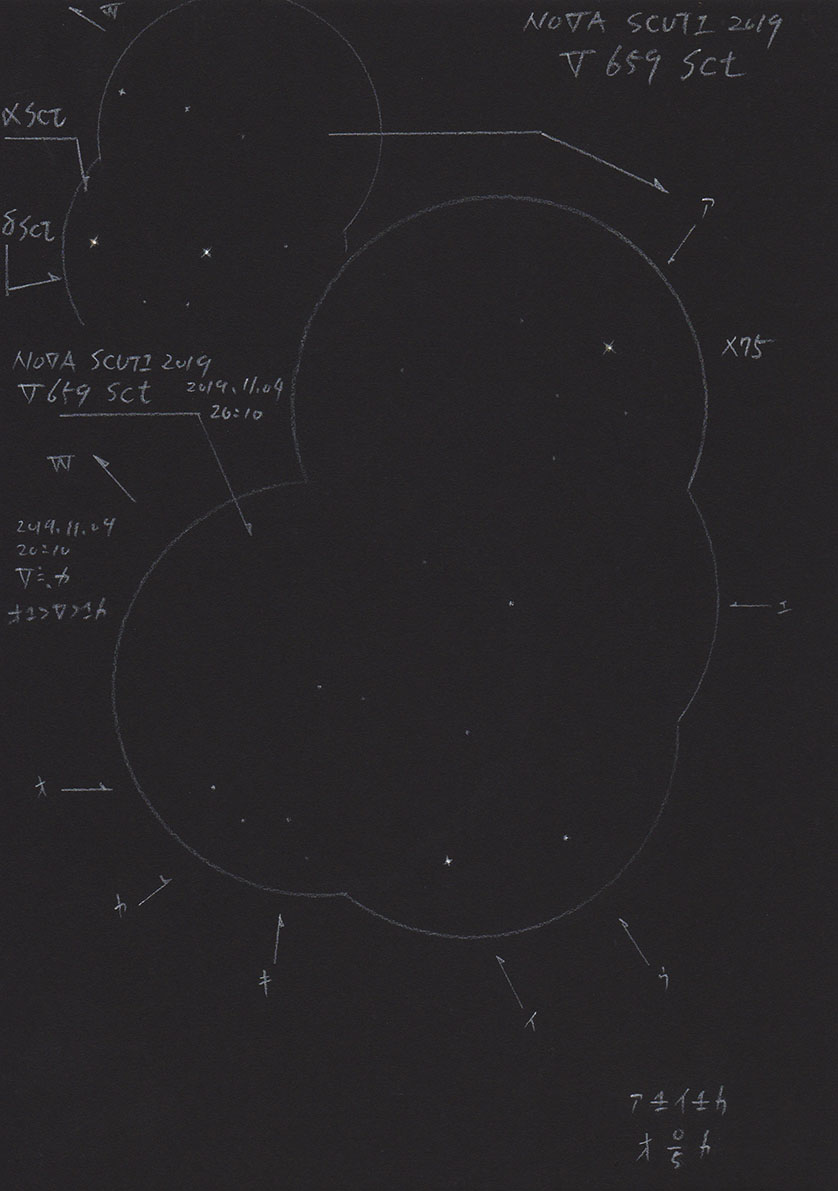 NOVA SCUTI 2019
V659 Sct
W
αSct
δSct
ア
×75
NOVA SCUTI 2019
V659 Sct
2019.11.04
20:10
W
2019.11.04
20:10
エ
オ
カ
キ
イ
ウ